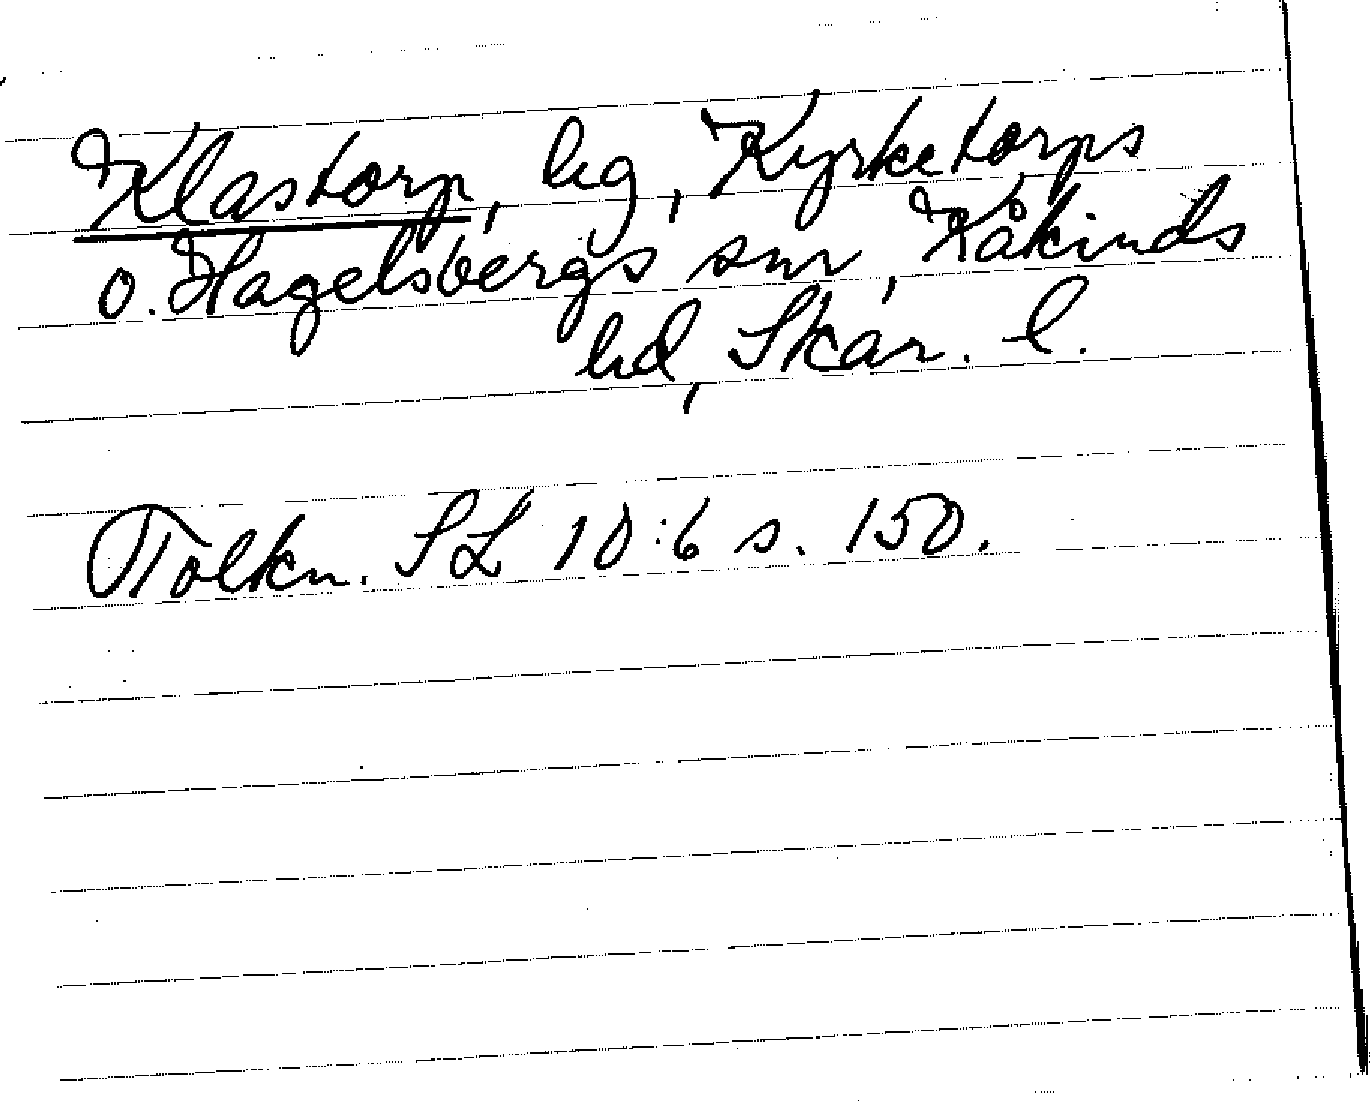 Klastorp, hg, Kyrketorps
o. Hagelsbergs snr, Kåkinds
hd, Skar. l.
Tolkn. SL 10:6 s. 150.